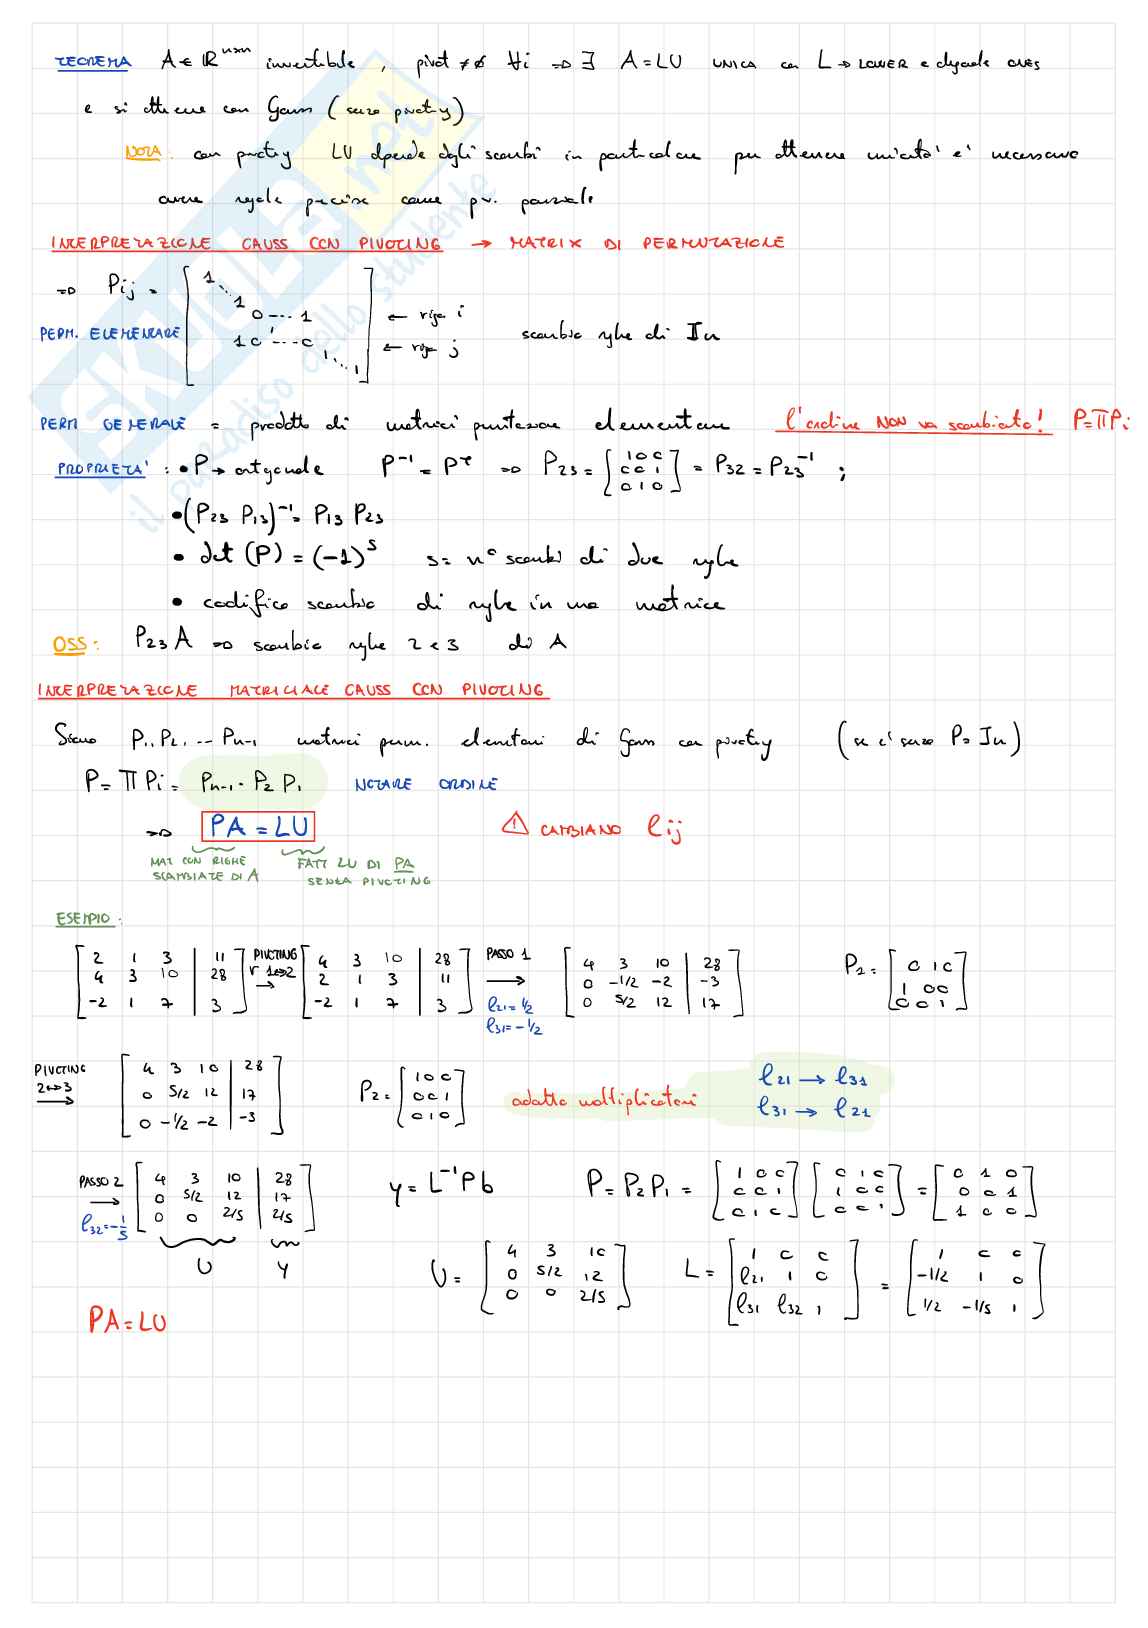 TEOREMA A ∈ ℝⁿˣⁿ invertibile , pivot ≠ 0 ∀i => ∃ A = LU UNICA con L → LOWER e diagonale ONES
e si ottiene con Gauss (senza pivoting)
NOTA: con pivoting LU dipende dagli scambi in particolare per ottenere unicità è necessario
avere regole precise come piv. parziale
INTERPRETAZIONE GAUSS CON PIVOTING → MATRIX DI PERMUTAZIONE
=> Pij = [ 1 ⋱ 1 0 --- 1 1 0 --- 0 1 ⋱ 1 ] ← riga i ← riga j scambio righe di In
PERM. ELEMENTARE
PERM GENERALE = prodotto di matrici permutazione elementare l'ordine NON va scambiato! P=ΠPi
PROPRIETA': • P → ortogonale P⁻¹ = Pᵀ => P23 = [1 0 0; 0 0 1; 0 1 0] = P32 = P23⁻¹ ;
• (P23 P13)⁻¹ = P13 P23
• det (P) = (-1)ˢ s = n° scambi di due righe
• codifico scambio di righe in una matrice
OSS: P23 A => scambia righe 2 e 3 di A
INTERPRETAZIONE MATRICIALE GAUSS CON PIVOTING
Siano P1, P2, ... Pn-1 matrici perm. elementari di Gauss con pivoting (se è senza P = In)
P = Π Pi = Pn-1 · P2 P1 NOTARE ORDINE
=> PA = LU ⚠ CAMBIANO lij
MAT CON RIGHE SCAMBIATE DI A
FATT LU DI PA SENZA PIVOTING
ESEMPIO:
[2 1 3 | 11; 4 3 10 | 28; -2 1 7 | 3] PIVOTING r 1↔2 → [4 3 10 | 28; 2 1 3 | 11; -2 1 7 | 3] PASSO 1 → l21 = 1/2 l31 = -1/2 [4 3 10 | 28; 0 -1/2 -2 | -3; 0 5/2 12 | 17] P2 = [0 1 0; 1 0 0; 0 0 1]
PIVOTING 2↔3 → [4 3 10 | 28; 0 5/2 12 | 17; 0 -1/2 -2 | -3] P2 = [1 0 0; 0 0 1; 0 1 0] adatto moltiplicatori l21 → l31
l31 → l21
PASSO 2 → l32 = -1/5 [4 3 10 | 28; 0 5/2 12 | 17; 0 0 2/5 | 2/5] y = L⁻¹Pb P = P2 P1 = [1 0 0; 0 0 1; 0 1 0] [0 1 0; 1 0 0; 0 0 1] = [0 1 0; 0 0 1; 1 0 0]
U y U = [4 3 10; 0 5/2 12; 0 0 2/5] L = [1 0 0; l21 1 0; l31 l32 1] = [1 0 0; -1/2 1 0; 1/2 -1/5 1]
PA = LU
SKUOLA.net
il paradiso dello studente